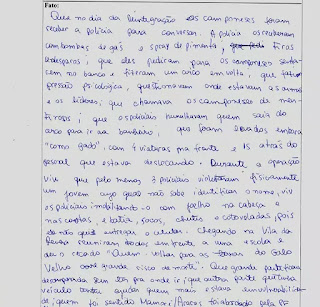 Fato:
Que no dia da Reintegração os camponeses foram
receber a policia para conversar. A policia os receberam
com bombas de gás e spray de pimenta, tiros
e disparos; que eles pediram para os camponeses senta-
rem no banco e fizeram um arco em volta; que
pressão psicologica, questionavam onde estavam as armas
e os lideres; que chamava os camponeses de men-
tirosos; que os policiais humilharam quem saia do
arco para ir ao banheiro; que foram levados embora
"como gado", com 7 viaturas na frente e 15 atrás do
pessoal que estava deslocando. Durante a operação
viu que pelo menos 3 policiais fisicamente
um jovem cujo qual não sabe identificar o nome, viu
os policiais imobilizando-o com joelho na cabeça e
nas costas e batia, socos, chutes e cotoveladas, pois
ele não quis entregar o celular. Chegando na Vila da
reuniram todos em frente a uma escola e
deu o recado "Quem voltar para as terras do Galo
Velho corre grande risco de morte". Que grande parte ficou
desamparada sem ter pra onde ir; que outra parte
veículo tentar ajudar quem mais estava em vunerabilida-
de; quem foi sentido foi abordado pela PF